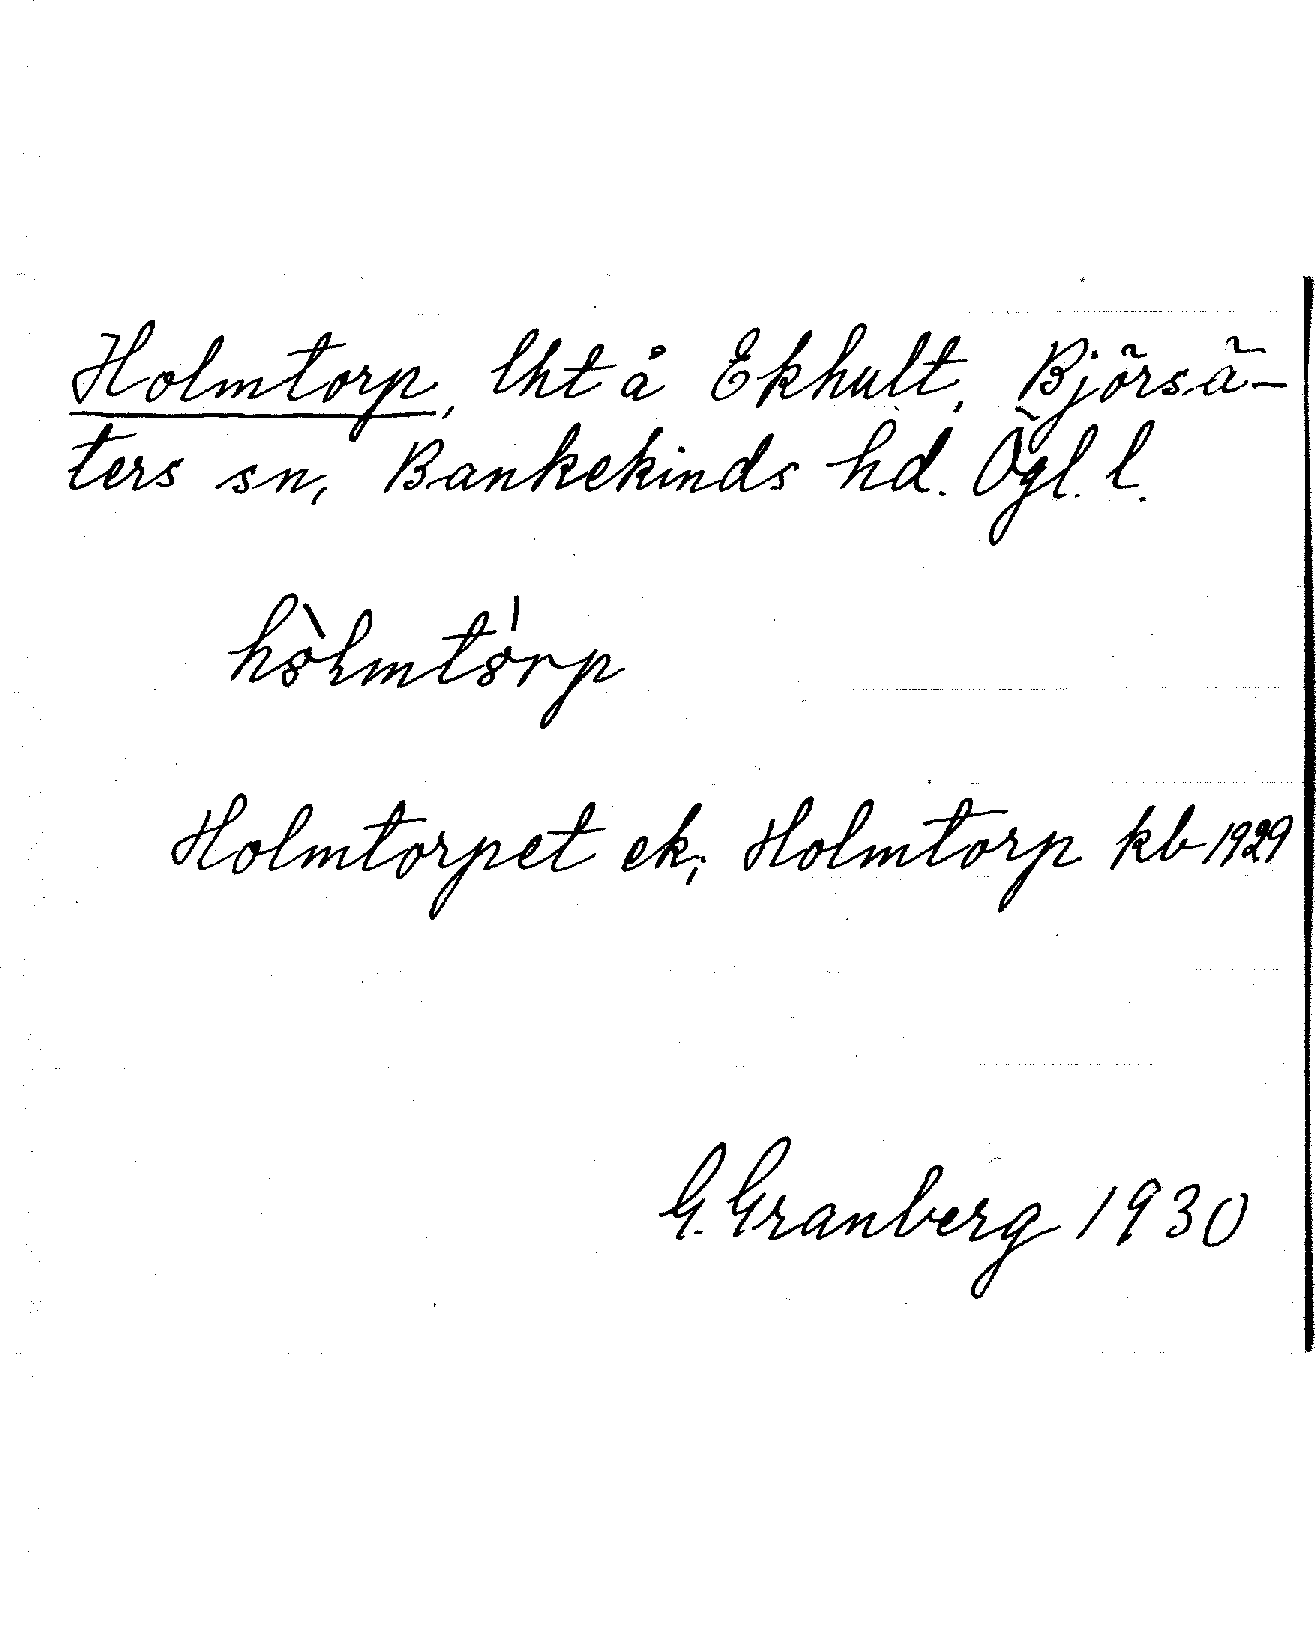 Holmtorp, lht å Ekhult, Björsä-
ters sn, Bankekinds hd. Ögl. l.
Holmtorpet ek; Holmtorp kb 1929
G. Granberg 1930